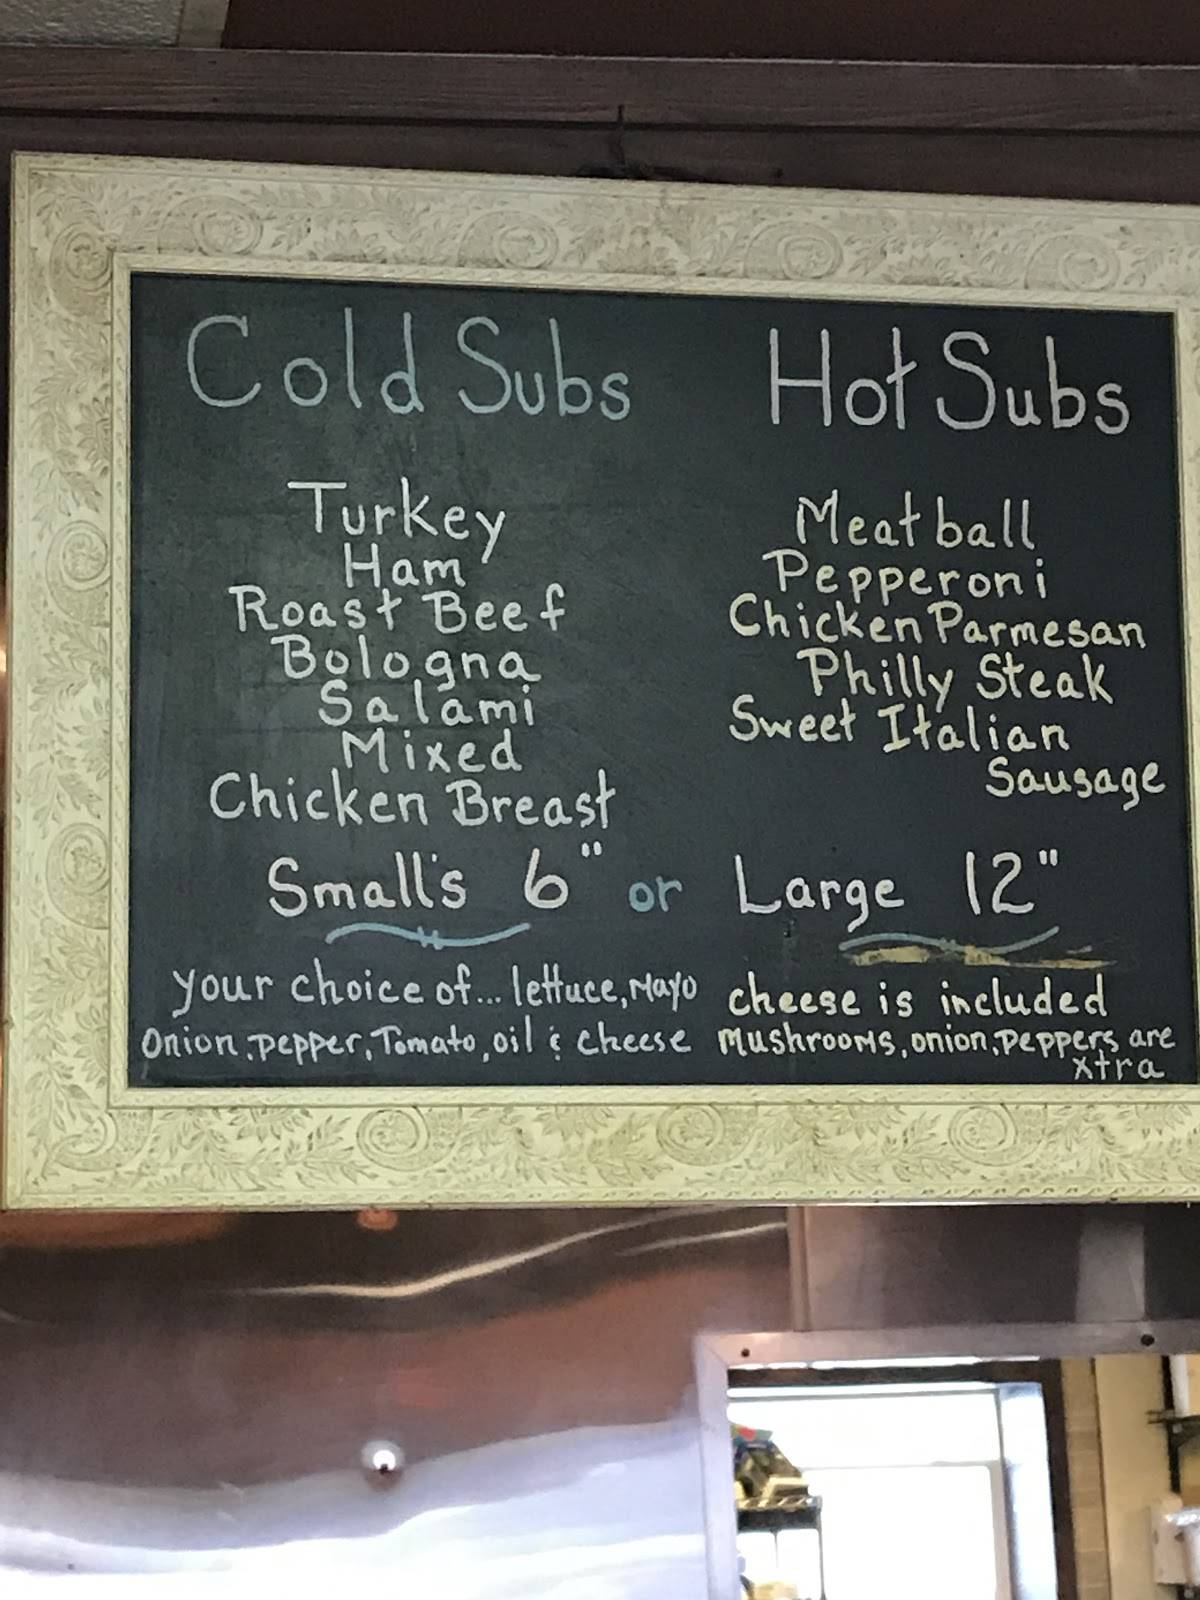 Cold Subs
Turkey
Ham
Roast Beef
Bologna
Salami
Mixed
Chicken Breast
Hot Subs
Meatball
Pepperoni
Chicken Parmesan
Philly Steak
Sweet Italian
Sausage
Small's 6" or Large 12"
your choice of... lettuce, Mayo
Onion, pepper, Tomato, oil & cheese
cheese is included
Mushrooms, onion, peppers are
xtra